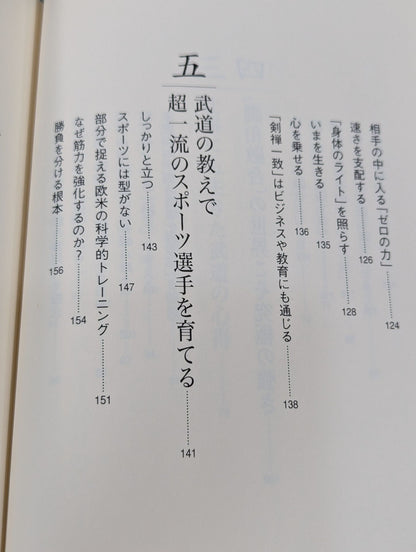 相手の中に入る「ゼロの力」……124
速さを支配する……126
「身体のライト」を照らす……128
いまを生きる……135
心を乗せる……136
「剣禅一致」はビジネスや教育にも通じる……138
五
武道の教えで
超一流のスポーツ選手を育てる……141
しっかりと立つ……143
スポーツには型がない……147
部分で捉える欧米の科学的トレーニング……151
なぜ筋力を強化するのか？……154
勝負を分ける根本……156